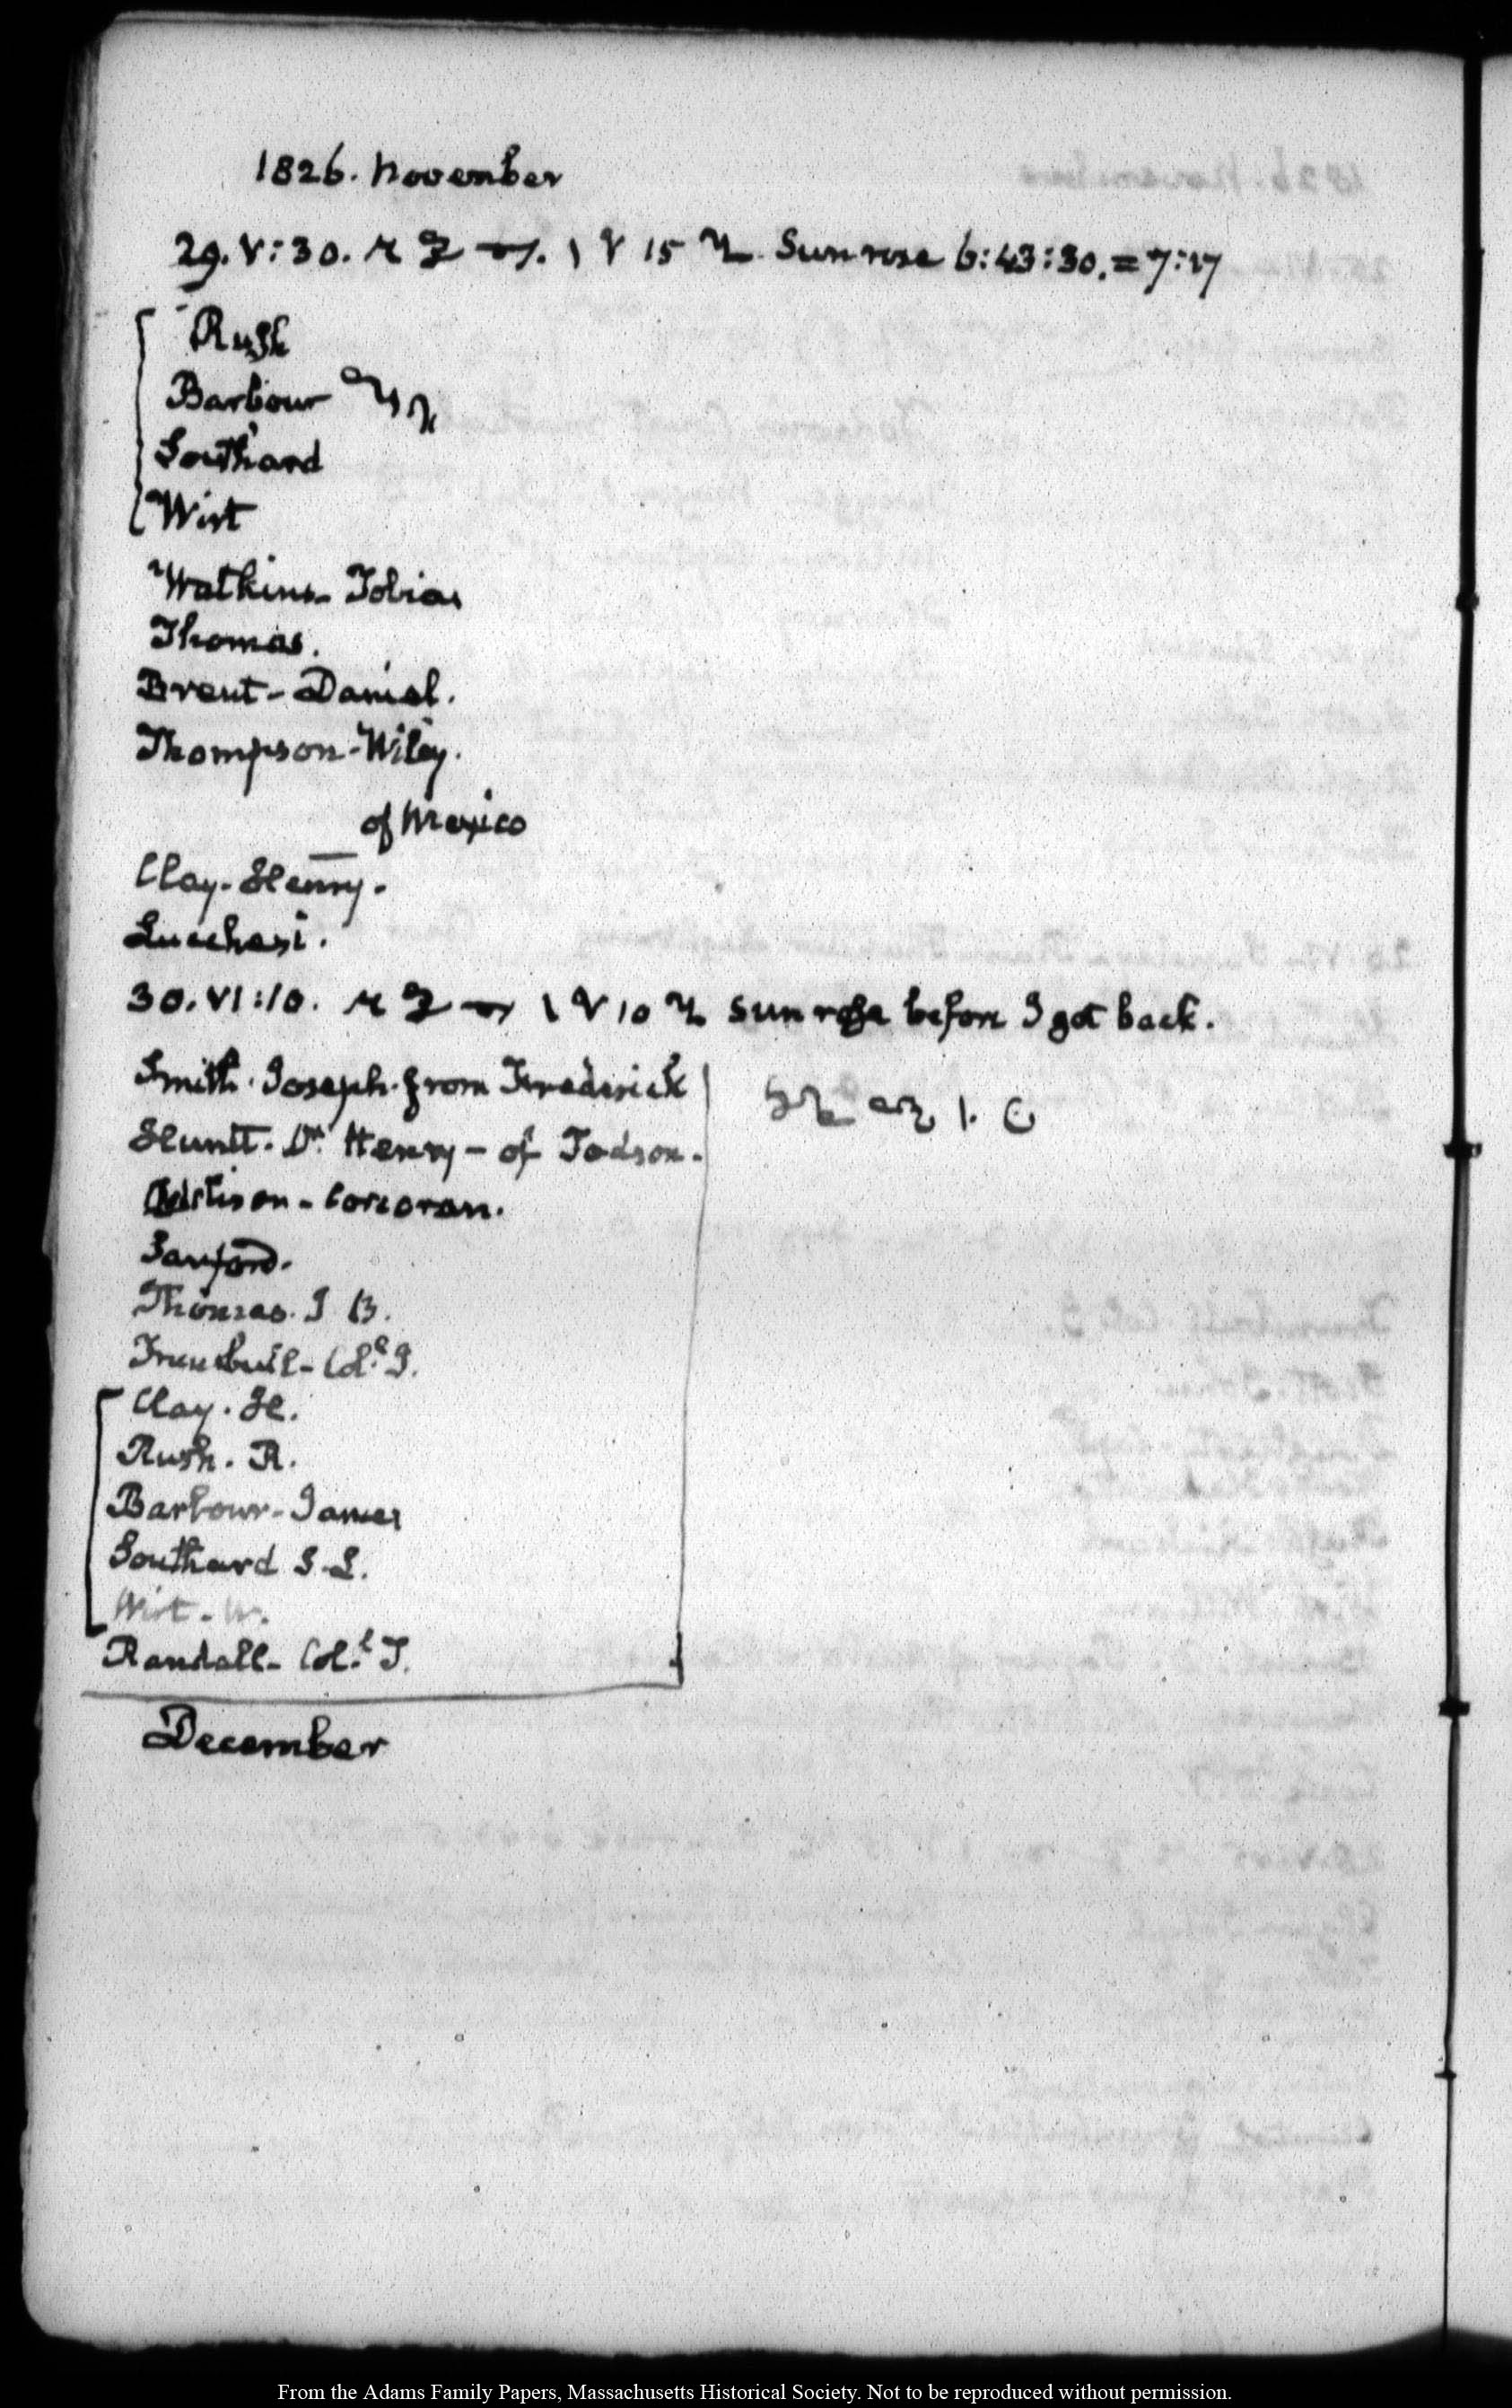 1826. November
29. V:30. 1 15 Sun rose 6:43:30. = 7:17
Rush
Barbour
Southard
Wirt
Watkins - Tobias
Thomas.
Brent - Daniel.
Thompson - Wiley.
of Mexico
Clay - Henry.
Lucchesi.
30. VI:10. 1 10 sun rose before I got back.
Smith. Joseph. from Frederick
Huntt. Dr. Henry - of Todson.
- Corcoran.
Sanford.
Thomas. J B.
Trumbull - Coll. J.
Clay. H.
Rush. R.
Barbour - James
Southard S. L.
Wirt - W.
Randall - Coll. T.
December
From the Adams Family Papers, Massachusetts Historical Society. Not to be reproduced without permission.